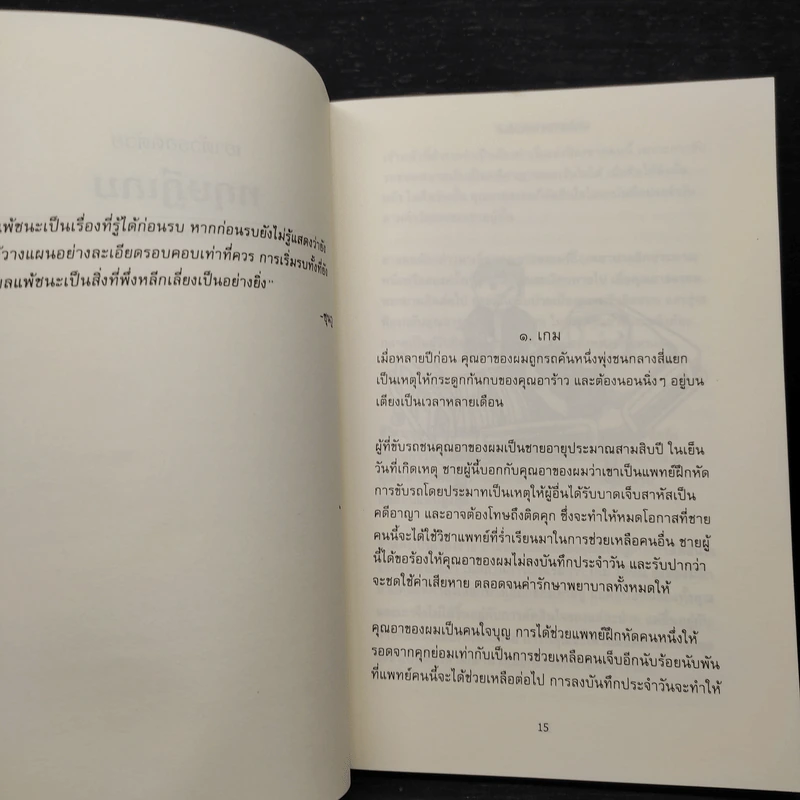 แพ้ชนะเป็นเรื่องที่รู้ได้ก่อนรบ หากก่อนรบยังไม่รู้แสดงว่ายัง
วางแผนอย่างละเอียดรอบคอบเท่าที่ควร การเริ่มรบทั้งที่ยัง
แพ้ชนะเป็นสิ่งที่พึงหลีกเลี่ยงเป็นอย่างยิ่ง"
๑. เกม
เมื่อหลายปีก่อน คุณอาของผมถูกรถคันหนึ่งพุ่งชนกลางสี่แยก
เป็นเหตุให้กระดูกก้นกบของคุณอาร้าว และต้องนอนนิ่งๆ อยู่บน
เตียงเป็นเวลาหลายเดือน
ผู้ที่ขับรถชนคุณอาของผมเป็นชายอายุประมาณสามสิบปี ในเย็น
วันที่เกิดเหตุ ชายผู้นี้บอกกับคุณอาของผมว่าเขาเป็นแพทย์ฝึกหัด
การขับรถโดยประมาทเป็นเหตุให้ผู้อื่นได้รับบาดเจ็บสาหัสเป็น
คดีอาญา และอาจต้องโทษถึงติดคุก ซึ่งจะทำให้หมดโอกาสที่ชาย
คนนี้จะได้ใช้วิชาแพทย์ที่ร่ำเรียนมาในการช่วยเหลือคนอื่น ชายผู้
นี้ได้ขอร้องให้คุณอาของผมไม่ลงบันทึกประจำวัน และรับปากว่า
จะชดใช้ค่าเสียหาย ตลอดจนค่ารักษาพยาบาลทั้งหมดให้
คุณอาของผมเป็นคนใจบุญ การได้ช่วยแพทย์ฝึกหัดคนหนึ่งให้
รอดจากคุกย่อมเท่ากับเป็นการช่วยเหลือคนเจ็บอีกนับร้อยนับพัน
ที่แพทย์คนนี้จะได้ช่วยเหลือต่อไป การลงบันทึกประจำวันจะทำให้
15